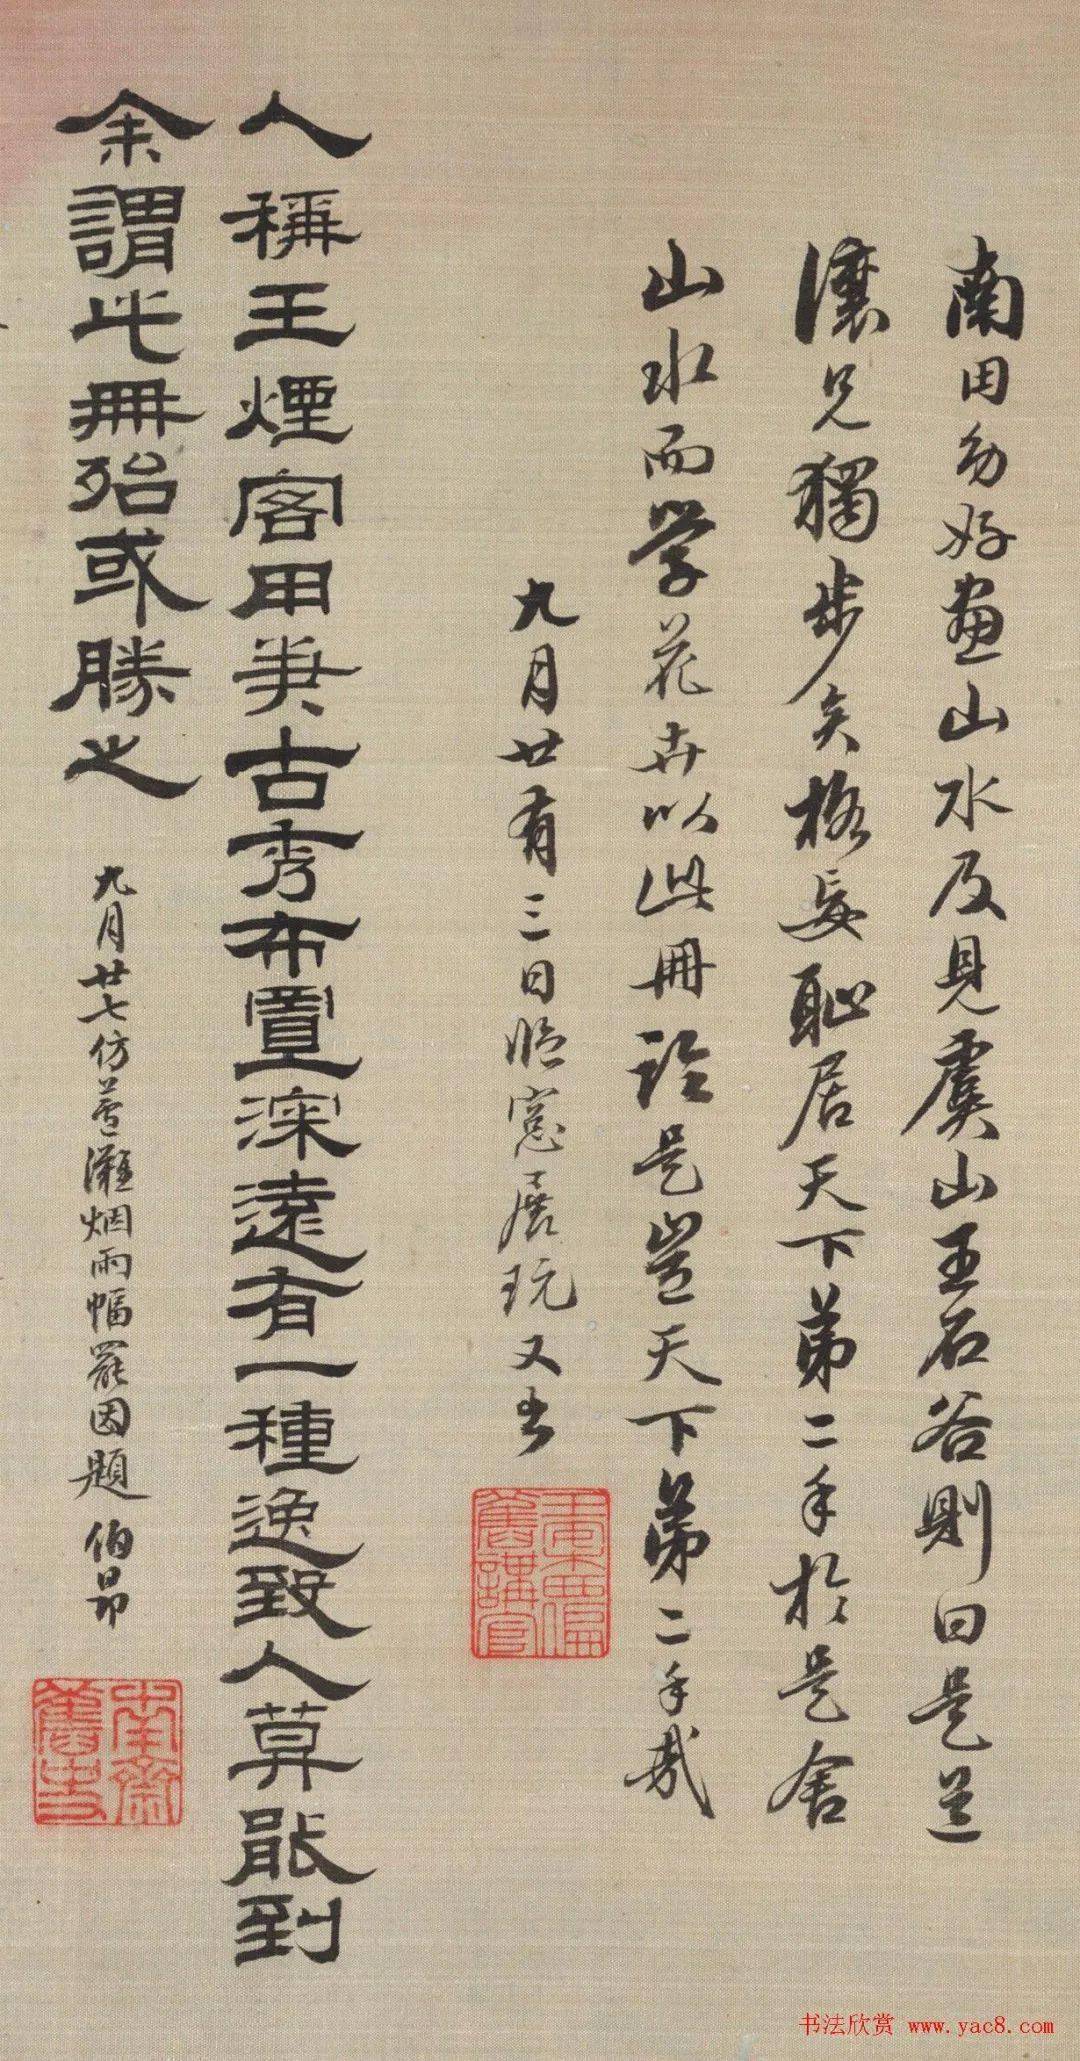 南田幼好畫山水及見虞山王石谷則曰是道
讓兄獨步矣格妄恥居天下第二手於是舍
山水而学花卉以此冊論是豈天下第二手哉
九月廿有三日臨窓展玩又書
人稱王煙客用筆古秀布置深遠有一種逸致人莫能到
余謂此冊殆或勝之
九月廿七仿蘆灘烟雨幅罷因題 伯昂
舊講官
南齋舊史
书法欣赏 www.yac8.com